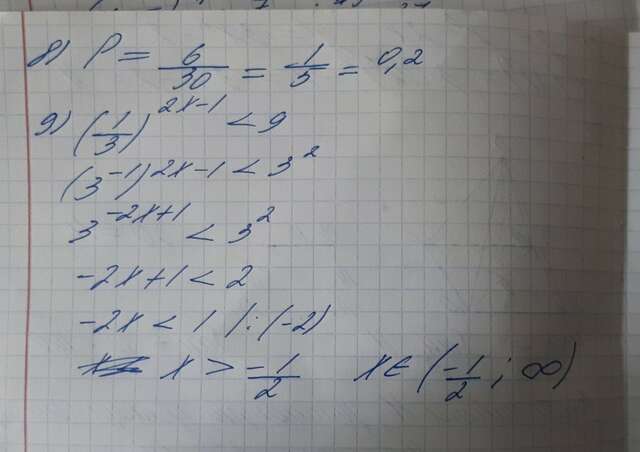 8) P = 6/30 = 1/5 = 0,2
9) (1/3)^(2x-1) < 9
(3^(-1))^(2x-1) < 3^2
3^(-2x+1) < 3^2
-2x+1 < 2
-2x < 1 |:(-2)
x > -1/2 x ∈ (-1/2 ; ∞)